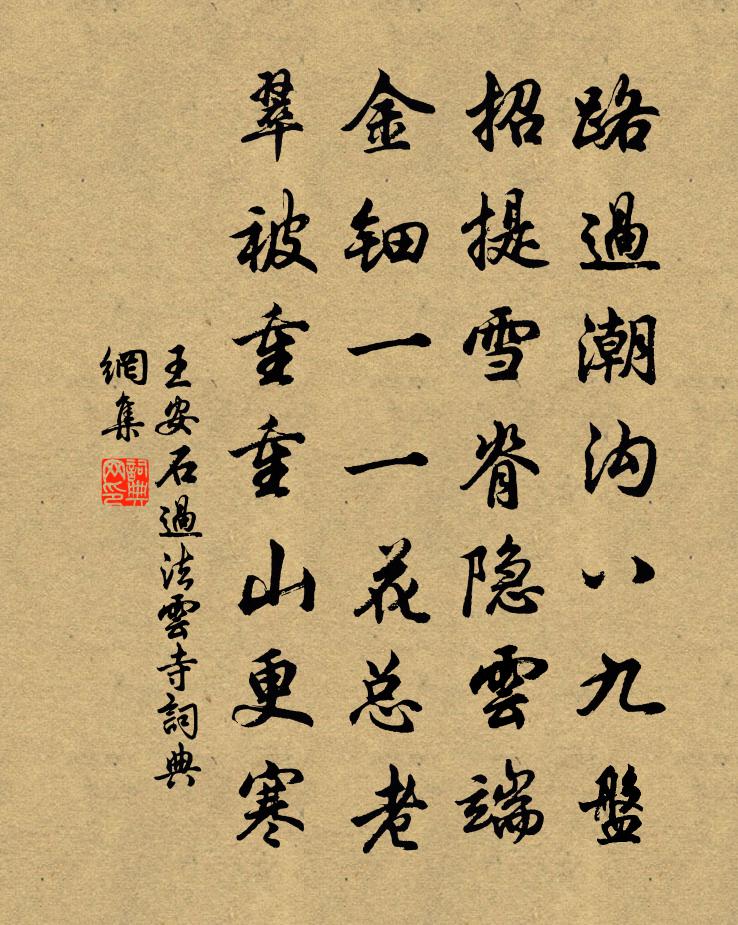 路過潮沟八九盤
招提雪脊隐雲端
金钿一一花总老
翠被重重山更寒
王安石過法雲寺詞典
網集
詞典
网印